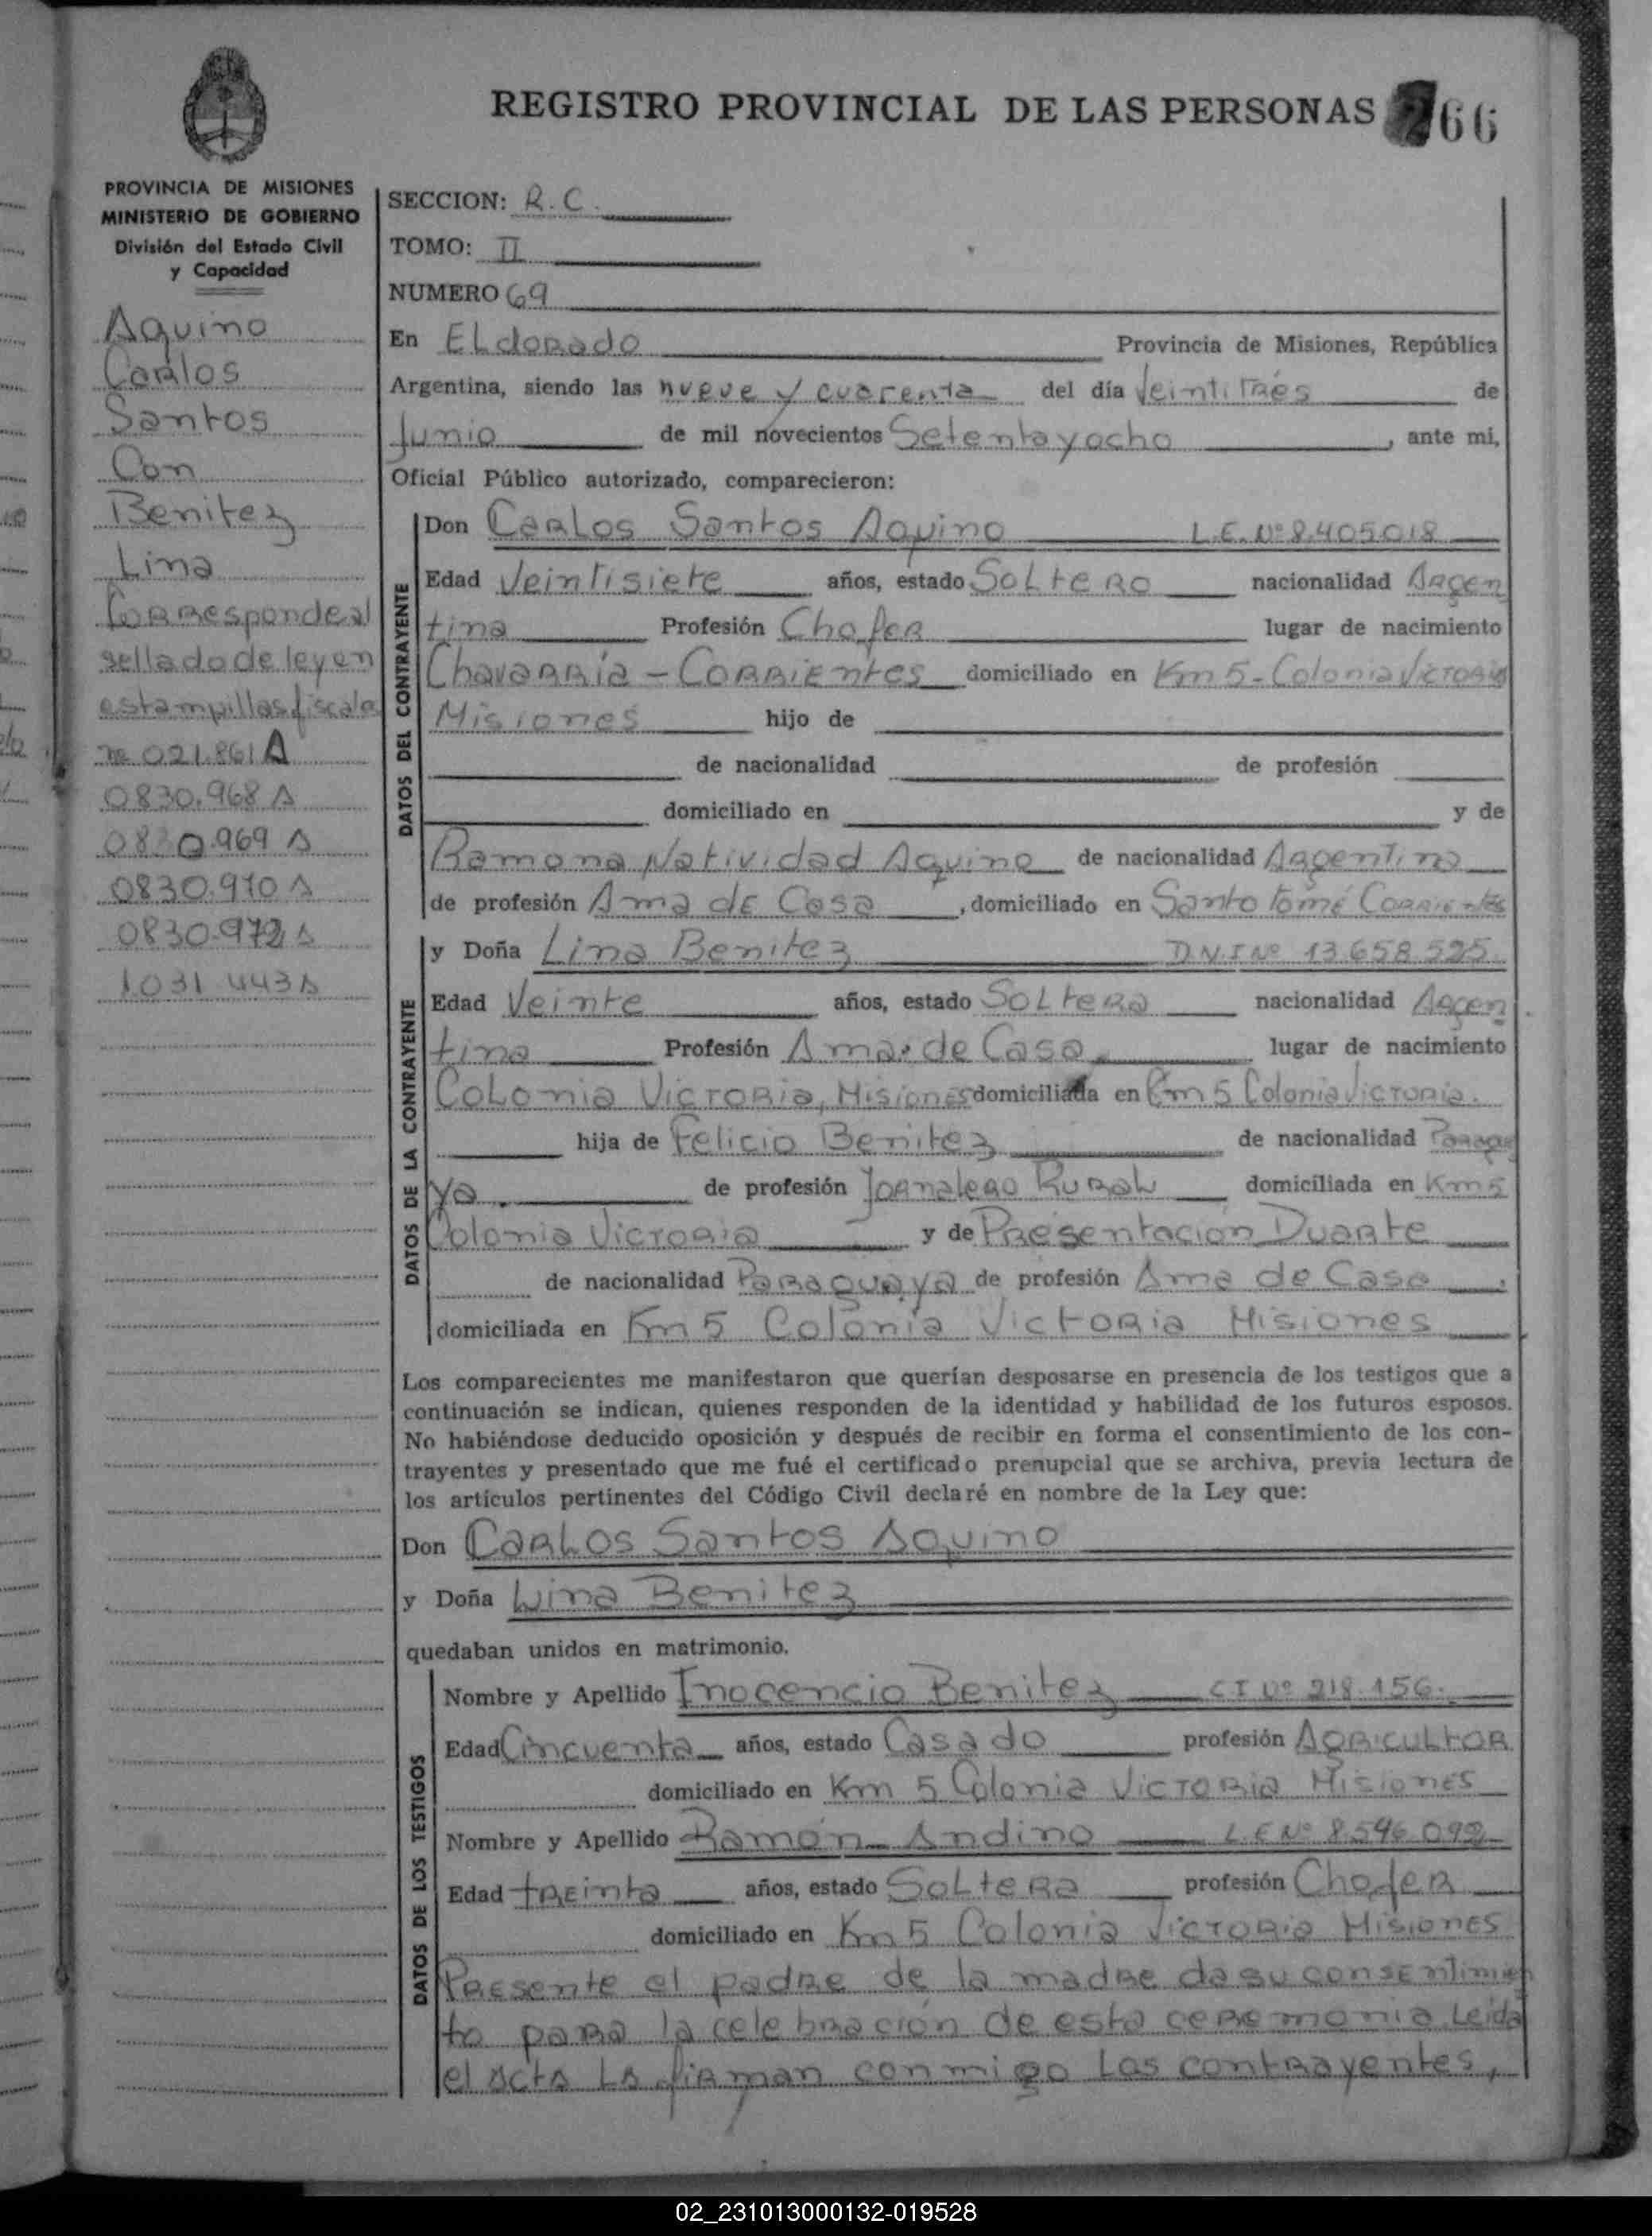 REGISTRO PROVINCIAL DE LAS PERSONAS 66
PROVINCIA DE MISIONES
MINISTERIO DE GOBIERNO
División del Estado Civil
y Capacidad
Aquino
Carlos
Santos
Con
Benitez
Lina
Corresponde al
sellado de ley en
estampillas fiscales
nº 021.861 A
0830.968 A
0830.969 A
0830.970 A
0830.972 A
1031 443 A
SECCION: R.C.
TOMO: II
NUMERO 69
En ELdorado Provincia de Misiones, República
Argentina, siendo las nueve y cuarenta del día Veintitrés de
Junio de mil novecientos Setenta y ocho, ante mi,
Oficial Público autorizado, comparecieron:
DATOS DEL CONTRAYENTE
Don Carlos Santos Aquino L.E. Nº 8.405018
Edad Veintisiete años, estado Soltero nacionalidad Argen
tina Profesión Chofer lugar de nacimiento
Chavarría - Corrientes domiciliado en Km 5 - Colonia Victoria
Misiones hijo de
de nacionalidad de profesión
domiciliado en y de
Ramona Natividad Aquino de nacionalidad Argentina
de profesión Ama de Casa, domiciliado en Santo Tomé Corrientes
DATOS DE LA CONTRAYENTE
y Doña Lina Benitez D.N.I Nº 13.658.525
Edad Veinte años, estado Soltera nacionalidad Argen
tina Profesión Ama de Casa lugar de nacimiento
Colonia Victoria, Misiones domiciliada en Km 5 Colonia Victoria.
hija de Felicio Benitez de nacionalidad Paragua
ya. de profesión Jornalero Rural domiciliada en Km 5
Colonia Victoria y de Presentación Duarte
de nacionalidad Paraguaya de profesión Ama de Casa,
domiciliada en Km 5 Colonia Victoria Misiones
Los comparecientes me manifestaron que querían desposarse en presencia de los testigos que a
continuación se indican, quienes responden de la identidad y habilidad de los futuros esposos.
No habiéndose deducido oposición y después de recibir en forma el consentimiento de los con-
trayentes y presentado que me fué el certificado prenupcial que se archiva, previa lectura de
los artículos pertinentes del Código Civil declaré en nombre de la Ley que:
Don Carlos Santos Aquino
y Doña Lina Benitez
quedaban unidos en matrimonio.
DATOS DE LOS TESTIGOS
Nombre y Apellido Inocencio Benitez C I Nº 218.156.
Edad Cincuenta años, estado Casado profesión Agricultor
domiciliado en Km 5 Colonia Victoria Misiones
Nombre y Apellido Ramón Andino L.E Nº 8.546.092
Edad treinta años, estado Soltera profesión Chofer
domiciliado en Km 5 Colonia Victoria Misiones
Presente el padre de la madre da su consentimien
to para la celebración de esta ceremonia. Leida
el acta la firman conmigo Los contrayentes,
02_231013000132-019528